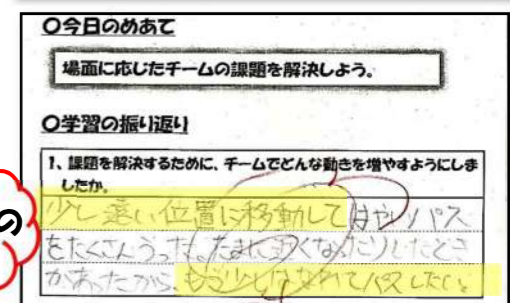 〇今日のめあて
場面に応じたチームの課題を解決しよう。
〇学習の振り返り
1、課題を解決するために、チームでどんな動きを増やすようにしま
したか。
少し遠い位置に移動してはやいパス
をたくさんうった。たまに近くなったりしたとき
があったから、もう少しはなれてパスしたい。
の